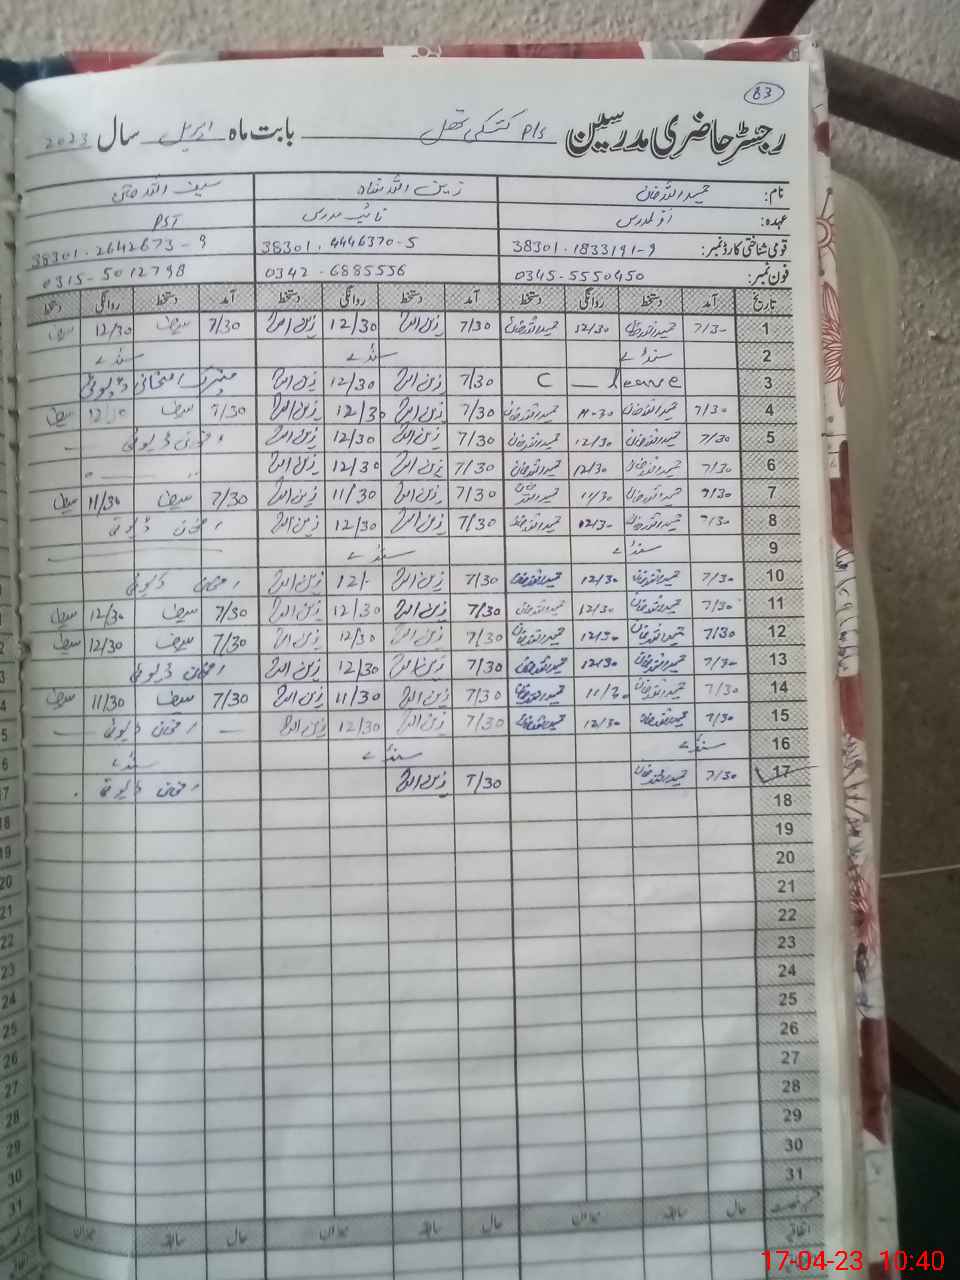 83
رجسٹر حاضری مدرسین P/S کتکی تھل بابت ماہ اپریل سال 2023
نام: حمیداللہ خان زین اللہ شاہ سیف اللہ خان
عہدہ: اول مدرس نائب مدرس PST
قومی شناختی کارڈ نمبر: 38301-1833191-9 38301-4446370-5 38301-2642673-9
فون نمبر: 0345-5550450 0342-6885556 0315-5012798
تاریخ آمد دستخط روانگی دستخط آمد دستخط روانگی دستخط آمد دستخط روانگی دستخط
1 7/30 حمیداللہ خان 12/30 حمیداللہ خان 7/30 زین اللہ 12/30 زین اللہ 7/30 سیف 12/30 سیف
2 سنڈے سنڈے سنڈے
3 C - leave 7/30 زین اللہ 12/30 زین اللہ میٹرک امتحانی ڈیوٹی
4 7/30 حمیداللہ خان 11-30 حمیداللہ خان 7/30 زین اللہ 12/30 زین اللہ 7/30 سیف 12/30 سیف
5 7/30 حمیداللہ خان 12/30 حمیداللہ خان 7/30 زین اللہ 12/30 زین اللہ امتحانی ڈیوٹی
6 7/30 حمیداللہ خان 12/30 حمیداللہ خان 7/30 زین اللہ 12/30 زین اللہ
7 7/30 حمیداللہ خان 11/30 حمیداللہ خان 7/30 زین اللہ 11/30 زین اللہ 7/30 سیف 11/30 سیف
8 7/30 حمیداللہ خان 12/30 حمیداللہ خان 7/30 زین اللہ 12/30 زین اللہ امتحانی ڈیوٹی
9 سنڈے سنڈے
10 7/30 حمیداللہ خان 12/30 حمیداللہ خان 7/30 زین اللہ 12/- زین اللہ امتحانی ڈیوٹی
11 7/30 حمیداللہ خان 12/30 حمیداللہ خان 7/30 زین اللہ 12/30 زین اللہ 7/30 سیف 12/30 سیف
12 7/30 حمیداللہ خان 12/30 حمیداللہ خان 7/30 زین اللہ 12/30 زین اللہ 7/30 سیف 12/30 سیف
13 7/30 حمیداللہ خان 12/30 حمیداللہ خان 7/30 زین اللہ 12/30 زین اللہ امتحانی ڈیوٹی
14 7/30 حمیداللہ خان 11/30 حمیداللہ خان 7/30 زین اللہ 11/30 زین اللہ 7/30 سیف 11/30 سیف
15 7/30 حمیداللہ خان 12/30 حمیداللہ خان 7/30 زین اللہ 12/30 زین اللہ امتحانی ڈیوٹی
16 سنڈے سنڈے سنڈے
17 7/30 حمیداللہ خان 7/30 زین اللہ امتحانی ڈیوٹی
18
19
20
21
22
23
24
25
26
27
28
29
30
31
حال سابقہ میزان حال سابقہ میزان حال سابقہ میزان
اتفاقیہ
17-04-23 10:40